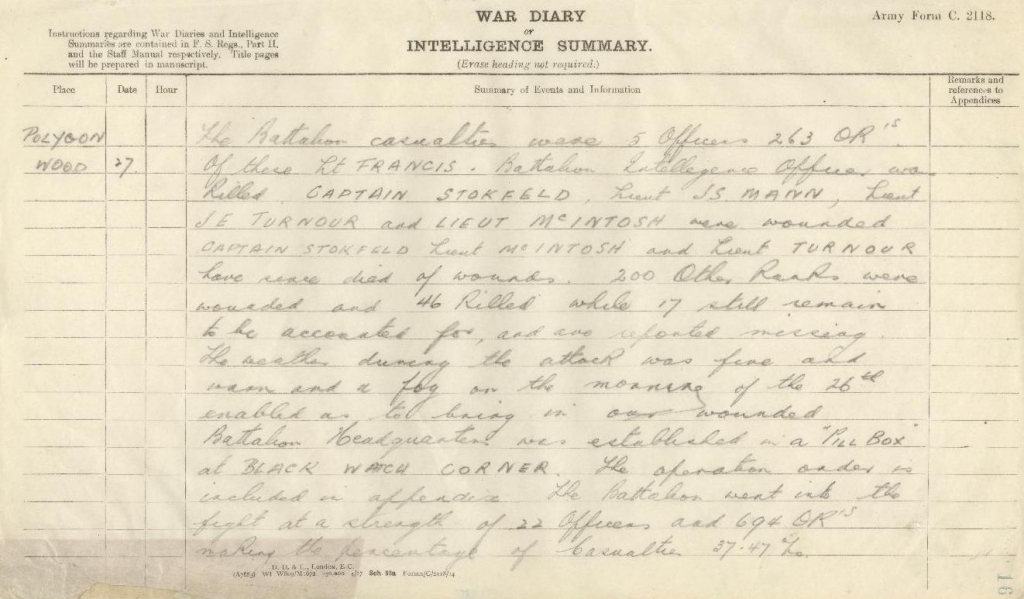 WAR DIARY
or
INTELLIGENCE SUMMARY.
(Erase heading not required.)
Army Form C. 2118.
Instructions regarding War Diaries and Intelligence
Summaries are contained in F. S. Regs., Part II.
and the Staff Manual respectively. Title pages
will be prepared in manuscript.
Place Date Hour Summary of Events and Information Remarks and references to Appendices
POLYGON The Battalion casualties were 5 Officers 263 OR's.
WOOD 27. Of these Lt FRANCIS. Battalion Intelligence Officer was
Killed. CAPTAIN STOKFELD, Lieut JS MANN, Lieut
JE TURNOUR and LIEUT McINTOSH were wounded
CAPTAIN STOKFELD Lieut McINTOSH and Lieut TURNOUR
have since died of wounds. 200 Other Ranks were
wounded and 46 Killed while 17 still remain
to be accounted for, and are reported missing.
The weather during the attack was fine and
warm and a fog on the morning of the 26th
enabled us to bring in our wounded
Battalion Headquarters was established in a "PILL BOX"
at BLACK WATCH CORNER. The operation order is
included in appendix The Battalion went into the
fight at a strength of 22 Officers and 694 OR's
making the percentage of Casualties 37.47 %.
D. D. & L., London, E.C.
Sch 52a Forms/C/2118/14
16